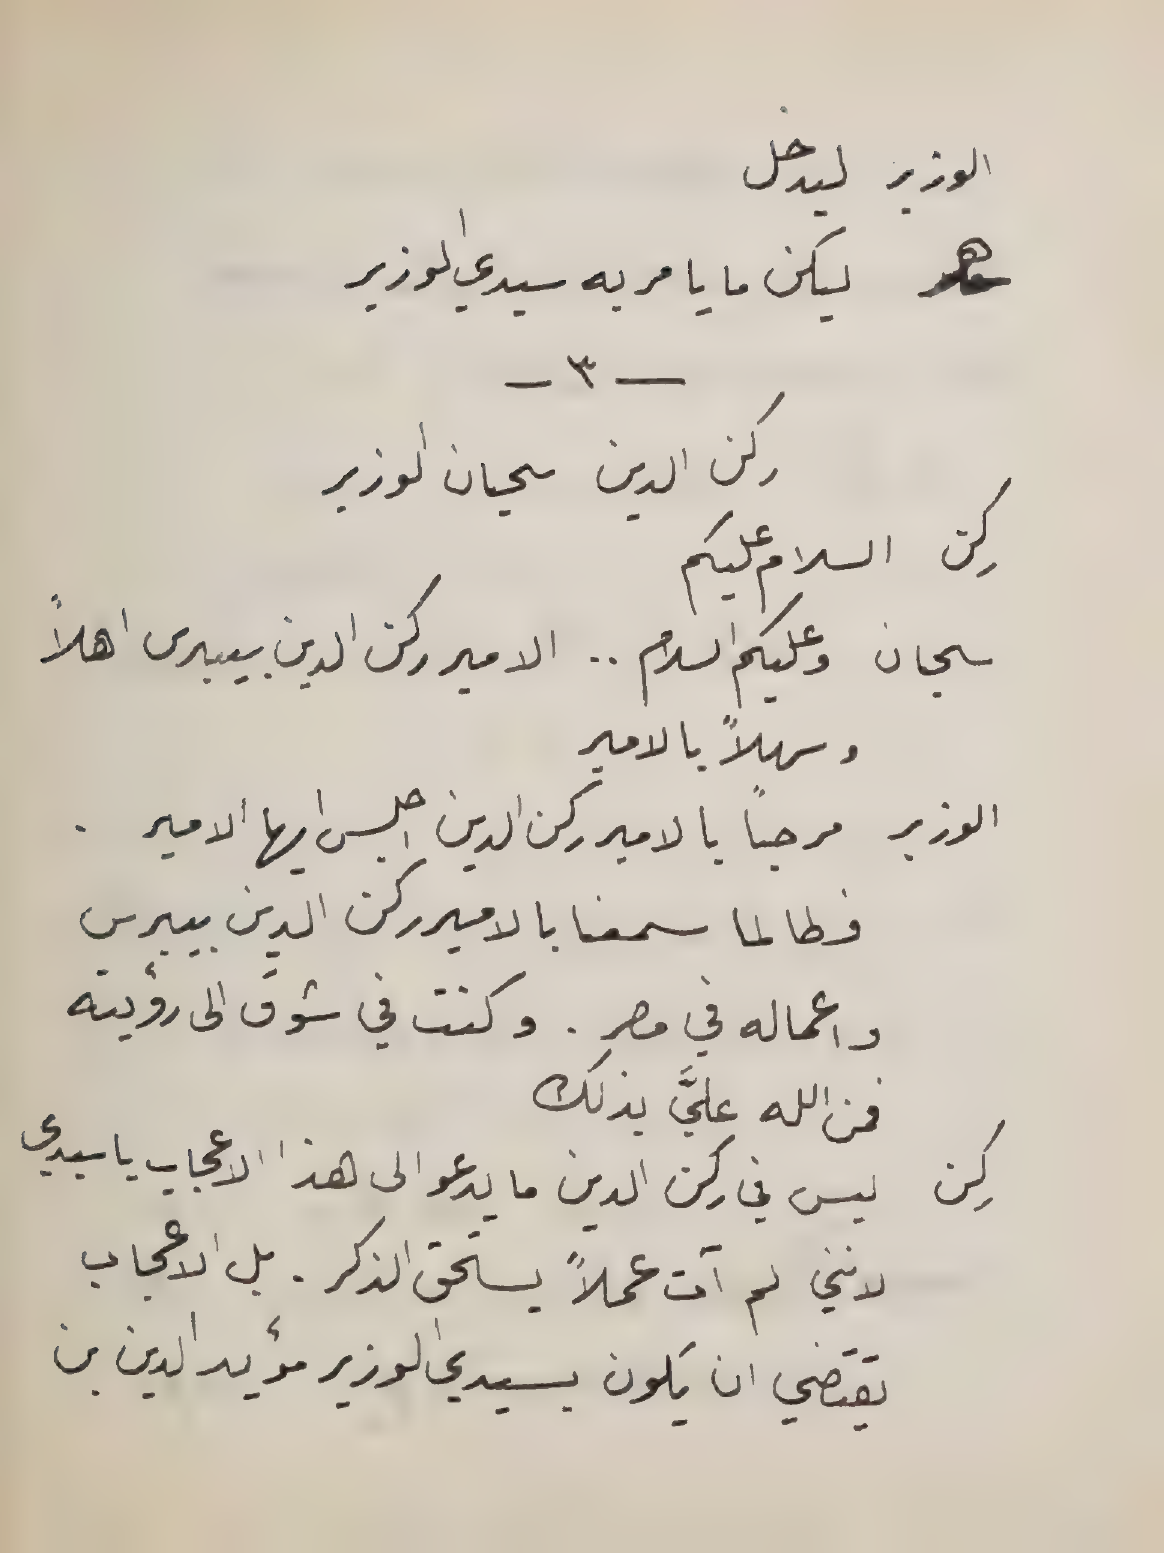 الوزير ليدخل
ليكن ما يامر به سيدي الوزير
— ٣ —
ركن الدين سحبان الوزير
ركن السلام عليكم
سحبان وعليكم السلام .. الامير ركن الدين بيبرس اهلاً
وسهلاً بالامير
الوزير مرحباً بالامير ركن الدين اجلس ايها الامير .
فطالما سمعنا بالامير ركن الدين بيبرس
واعماله في مصر . وكنت في شوق الى رؤيته
فمن الله عليَّ بذلك
ركن ليس في ركن الدين ما يدعو الى هذا الاعجاب يا سيدي
لانني لم آت عملاً يستحق الذكر . بل الاعجاب
يقتضي ان يكون بسيدي الوزير مؤيد الدين بن